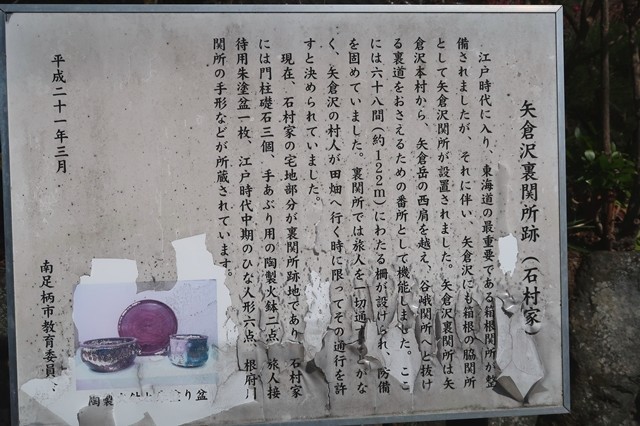 矢倉沢裏関所跡（石村家）
江戸時代に入り、東海道の最重要である箱根関所が整
備されましたが、それに伴い、矢倉沢にも箱根の脇関所
として矢倉沢関所が設置されました。矢倉沢裏関所は矢
倉沢本村から、矢倉岳の西肩を越え、谷峨関所へと抜け
る裏道をおさえるための番所として機能しました。ここ
には六十八間（約122m）にわたる柵が設けられ、防備
を固めていました。裏関所では旅人を一切通す かな
く、矢倉沢の村人が田畑へ行く時に限ってその通行を許
すと決められていました。
現在、石村家の宅地部分が裏関所跡地であり、石村家
には門柱礎石三個、手あぶり用の陶製火鉢二点、旅人接
待用朱塗盆一枚、江戸時代中期のひな人形六点、根府川
関所の手形などが所蔵されています。
平成二十一年三月
南足柄市教育委員
陶製 り盆